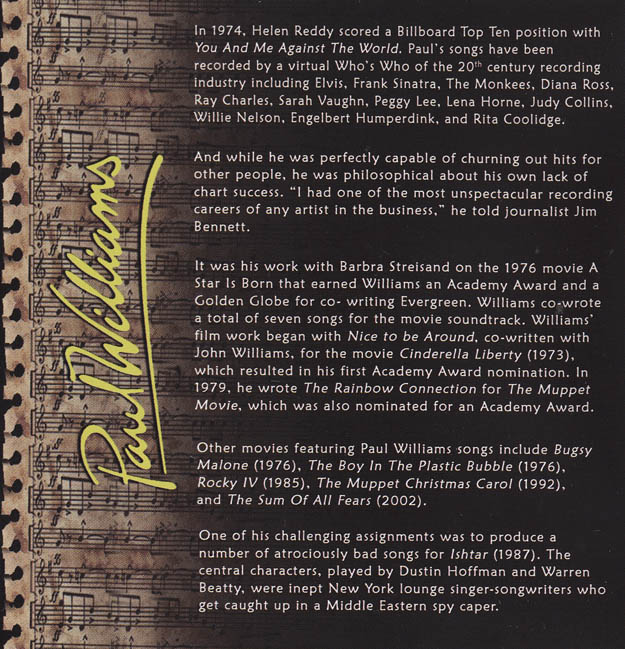 In 1974, Helen Reddy scored a Billboard Top Ten position with
You And Me Against The World. Paul's songs have been
recorded by a virtual Who's Who of the 20th century recording
industry including Elvis, Frank Sinatra, The Monkees, Diana Ross,
Ray Charles, Sarah Vaughn, Peggy Lee, Lena Horne, Judy Collins,
Willie Nelson, Engelbert Humperdink, and Rita Coolidge.
And while he was perfectly capable of churning out hits for
other people, he was philosophical about his own lack of
chart success. "I had one of the most unspectacular recording
careers of any artist in the business," he told journalist Jim
Bennett.
It was his work with Barbra Streisand on the 1976 movie A
Star Is Born that earned Williams an Academy Award and a
Golden Globe for co- writing Evergreen. Williams co-wrote
a total of seven songs for the movie soundtrack. Williams'
film work began with Nice to be Around, co-written with
John Williams, for the movie Cinderella Liberty (1973),
which resulted in his first Academy Award nomination. In
1979, he wrote The Rainbow Connection for The Muppet
Movie, which was also nominated for an Academy Award.
Other movies featuring Paul Williams songs include Bugsy
Malone (1976), The Boy In The Plastic Bubble (1976),
Rocky IV (1985), The Muppet Christmas Carol (1992),
and The Sum Of All Fears (2002).
One of his challenging assignments was to produce a
number of atrociously bad songs for Ishtar (1987). The
central characters, played by Dustin Hoffman and Warren
Beatty, were inept New York lounge singer-songwriters who
get caught up in a Middle Eastern spy caper.
Paul Williams